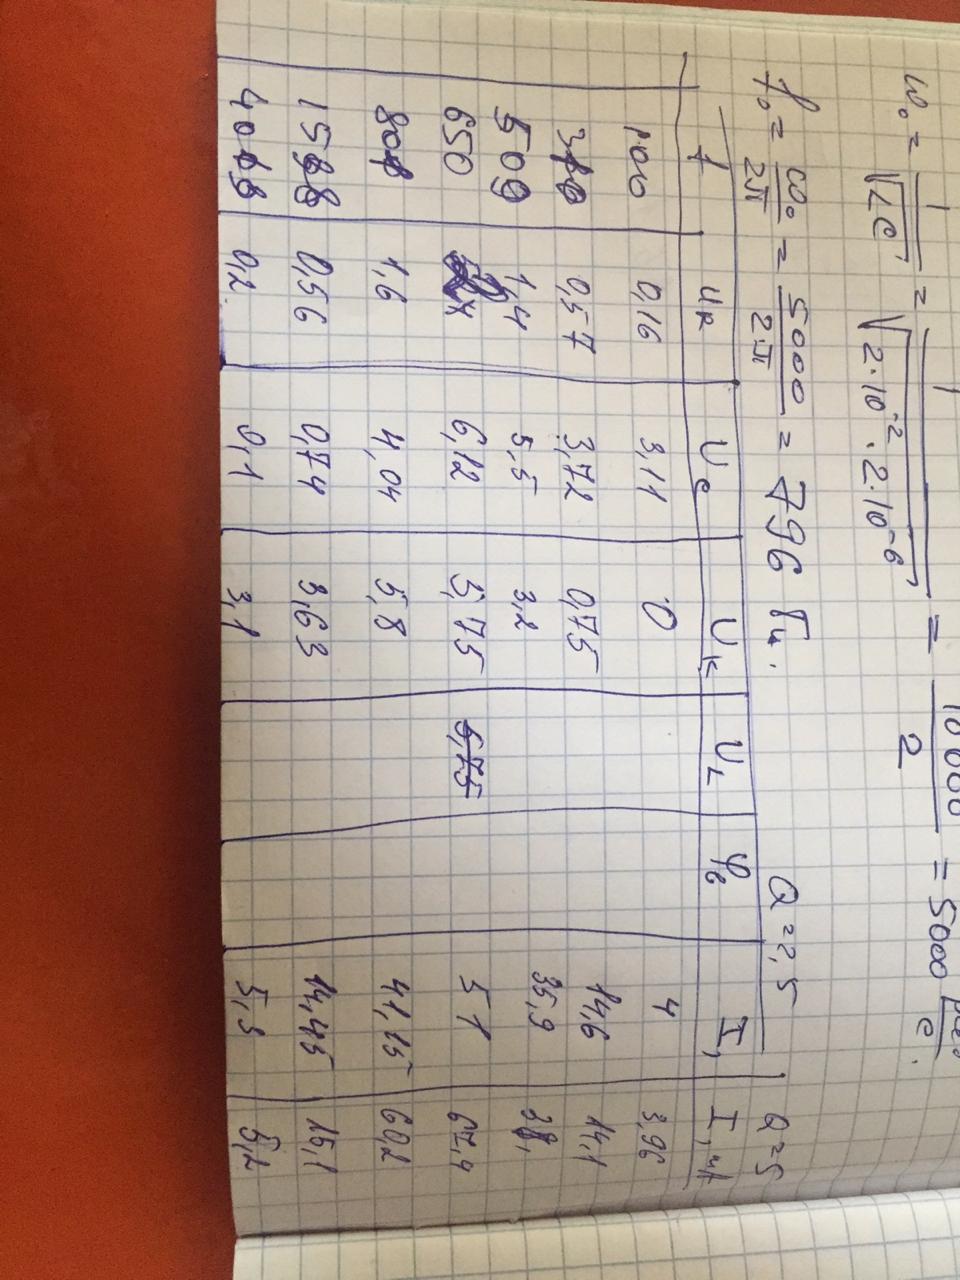 ω₀ = 1/√LC = 1/√(2·10⁻²·2·10⁻⁶) = 10000/2 = 5000 рад/с.
f₀ = ω₀/2π = 5000/2·π = 796 Гц.
Q=2,5 Q=5
f U_R U_C U_K U_L φ_в I, I, мА
100 0,16 3,11 0 4 3,96
0,57 3,72 0,75 14,6 14,1
509 1,4 5,5 3,2 35,9
650 6,12 5,75 5,75 51 67,4
808 1,6 4,04 5,8 41,15 60,2
1588 0,56 0,74 3,63 14,45 15,1
4068 0,2 0,1 3,1 5,3 5,2